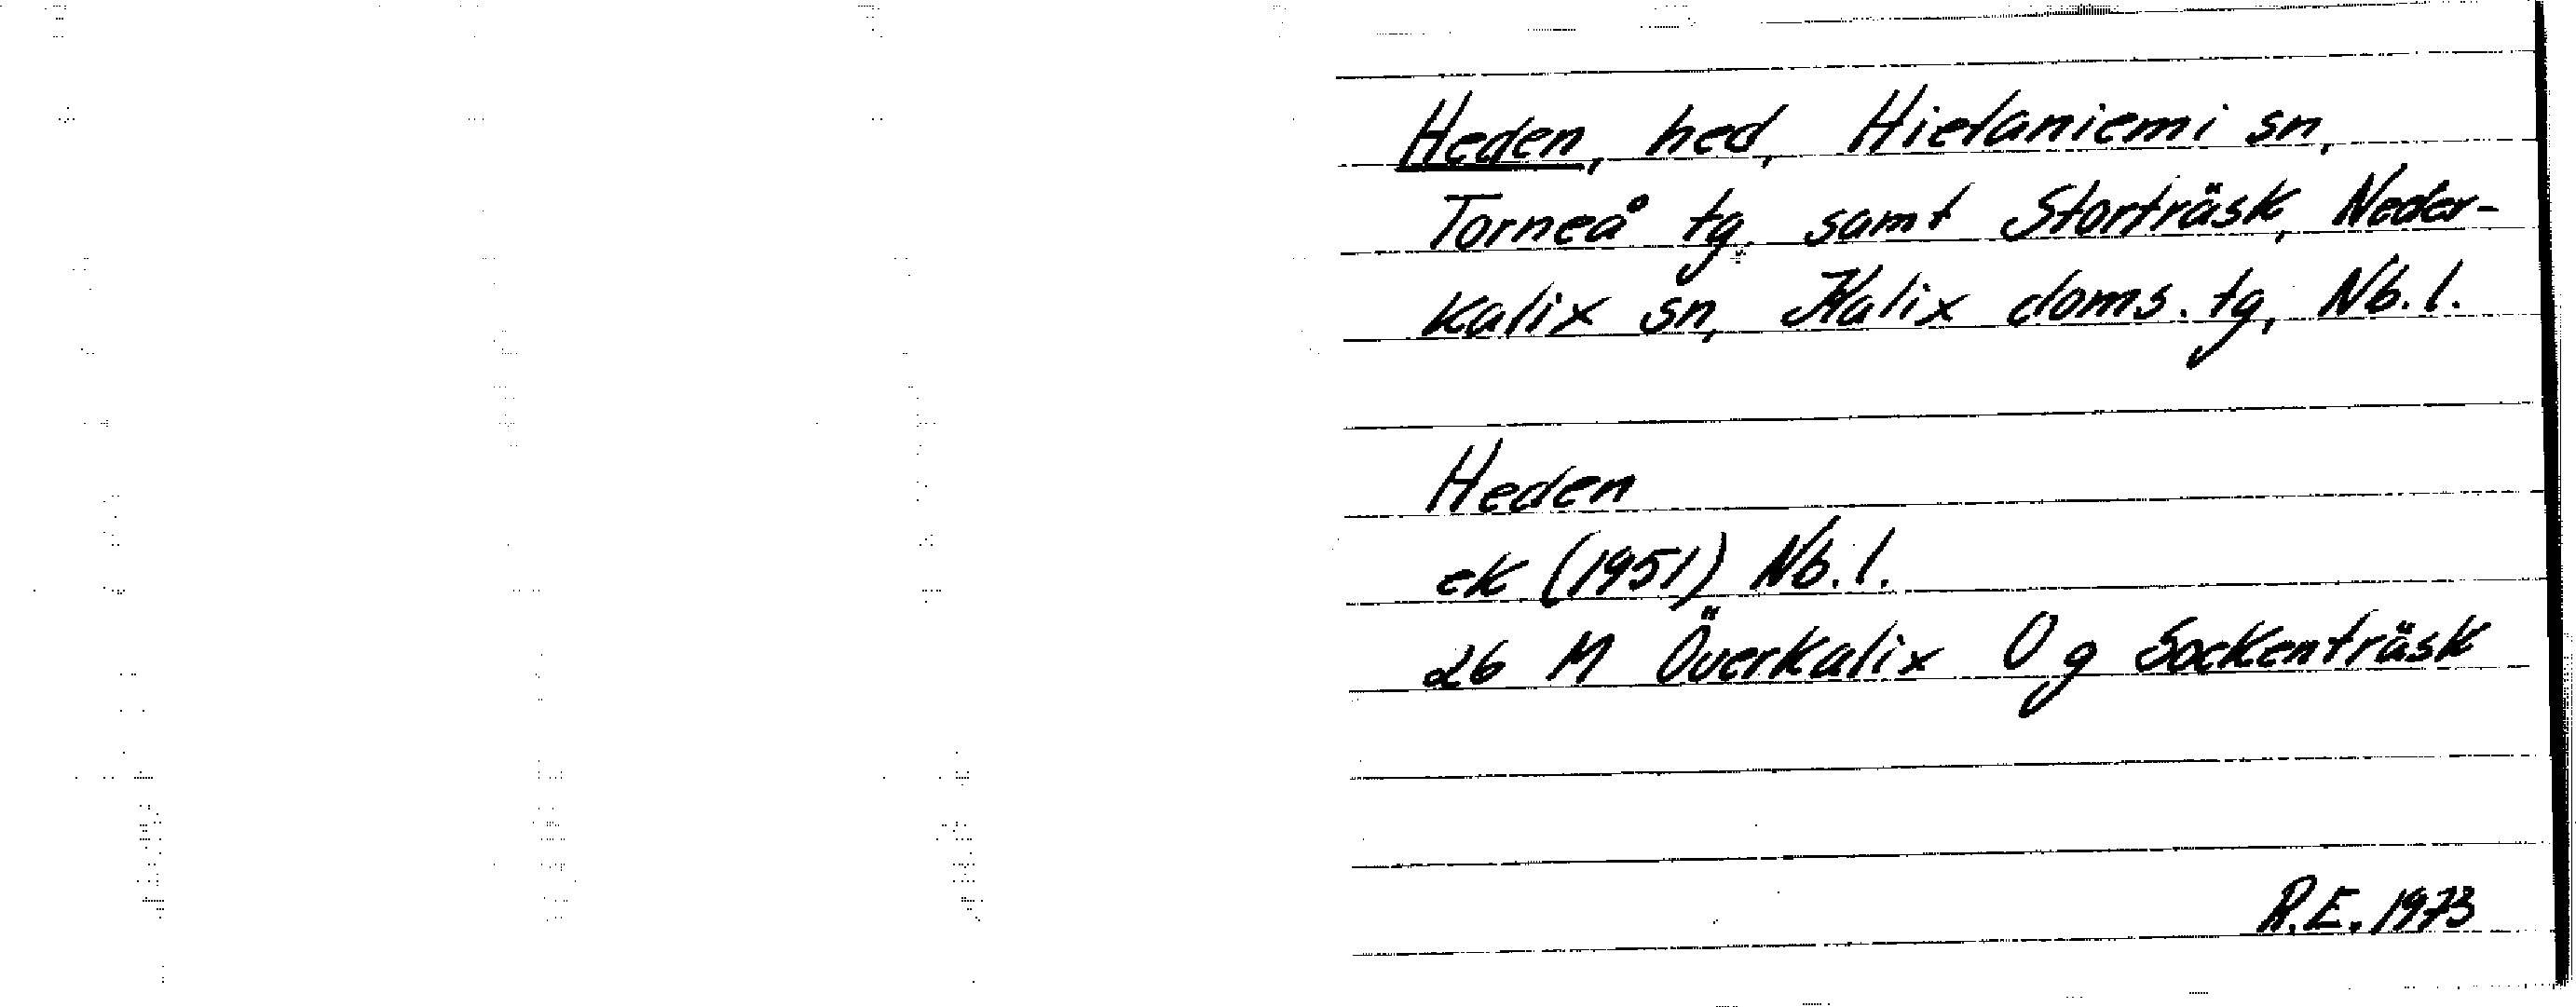 Heden, hed, Hietaniemi sn,
Torneå tg. samt Storträsk, Neder-
kalix sn, Kalix doms. tg, Nb. l.
Heden
ek (1951) Nb. l.
26 M Överkalix O g Sockenträsk
R.E. 1973